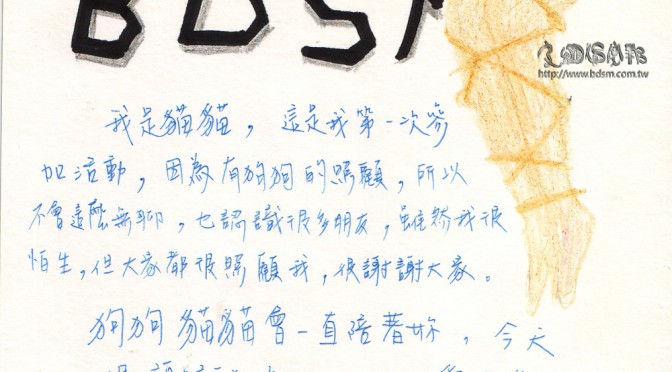 BDSM
http://www.bdsm.com.tw
我是貓貓，這是我第一次參
加活動，因為有狗狗的照顧，所以
不會這麼無聊，也認識很多朋友，雖然我很
怕生，但大家都很照顧我，很謝謝大家。
狗狗貓貓會一直陪著妳，今天